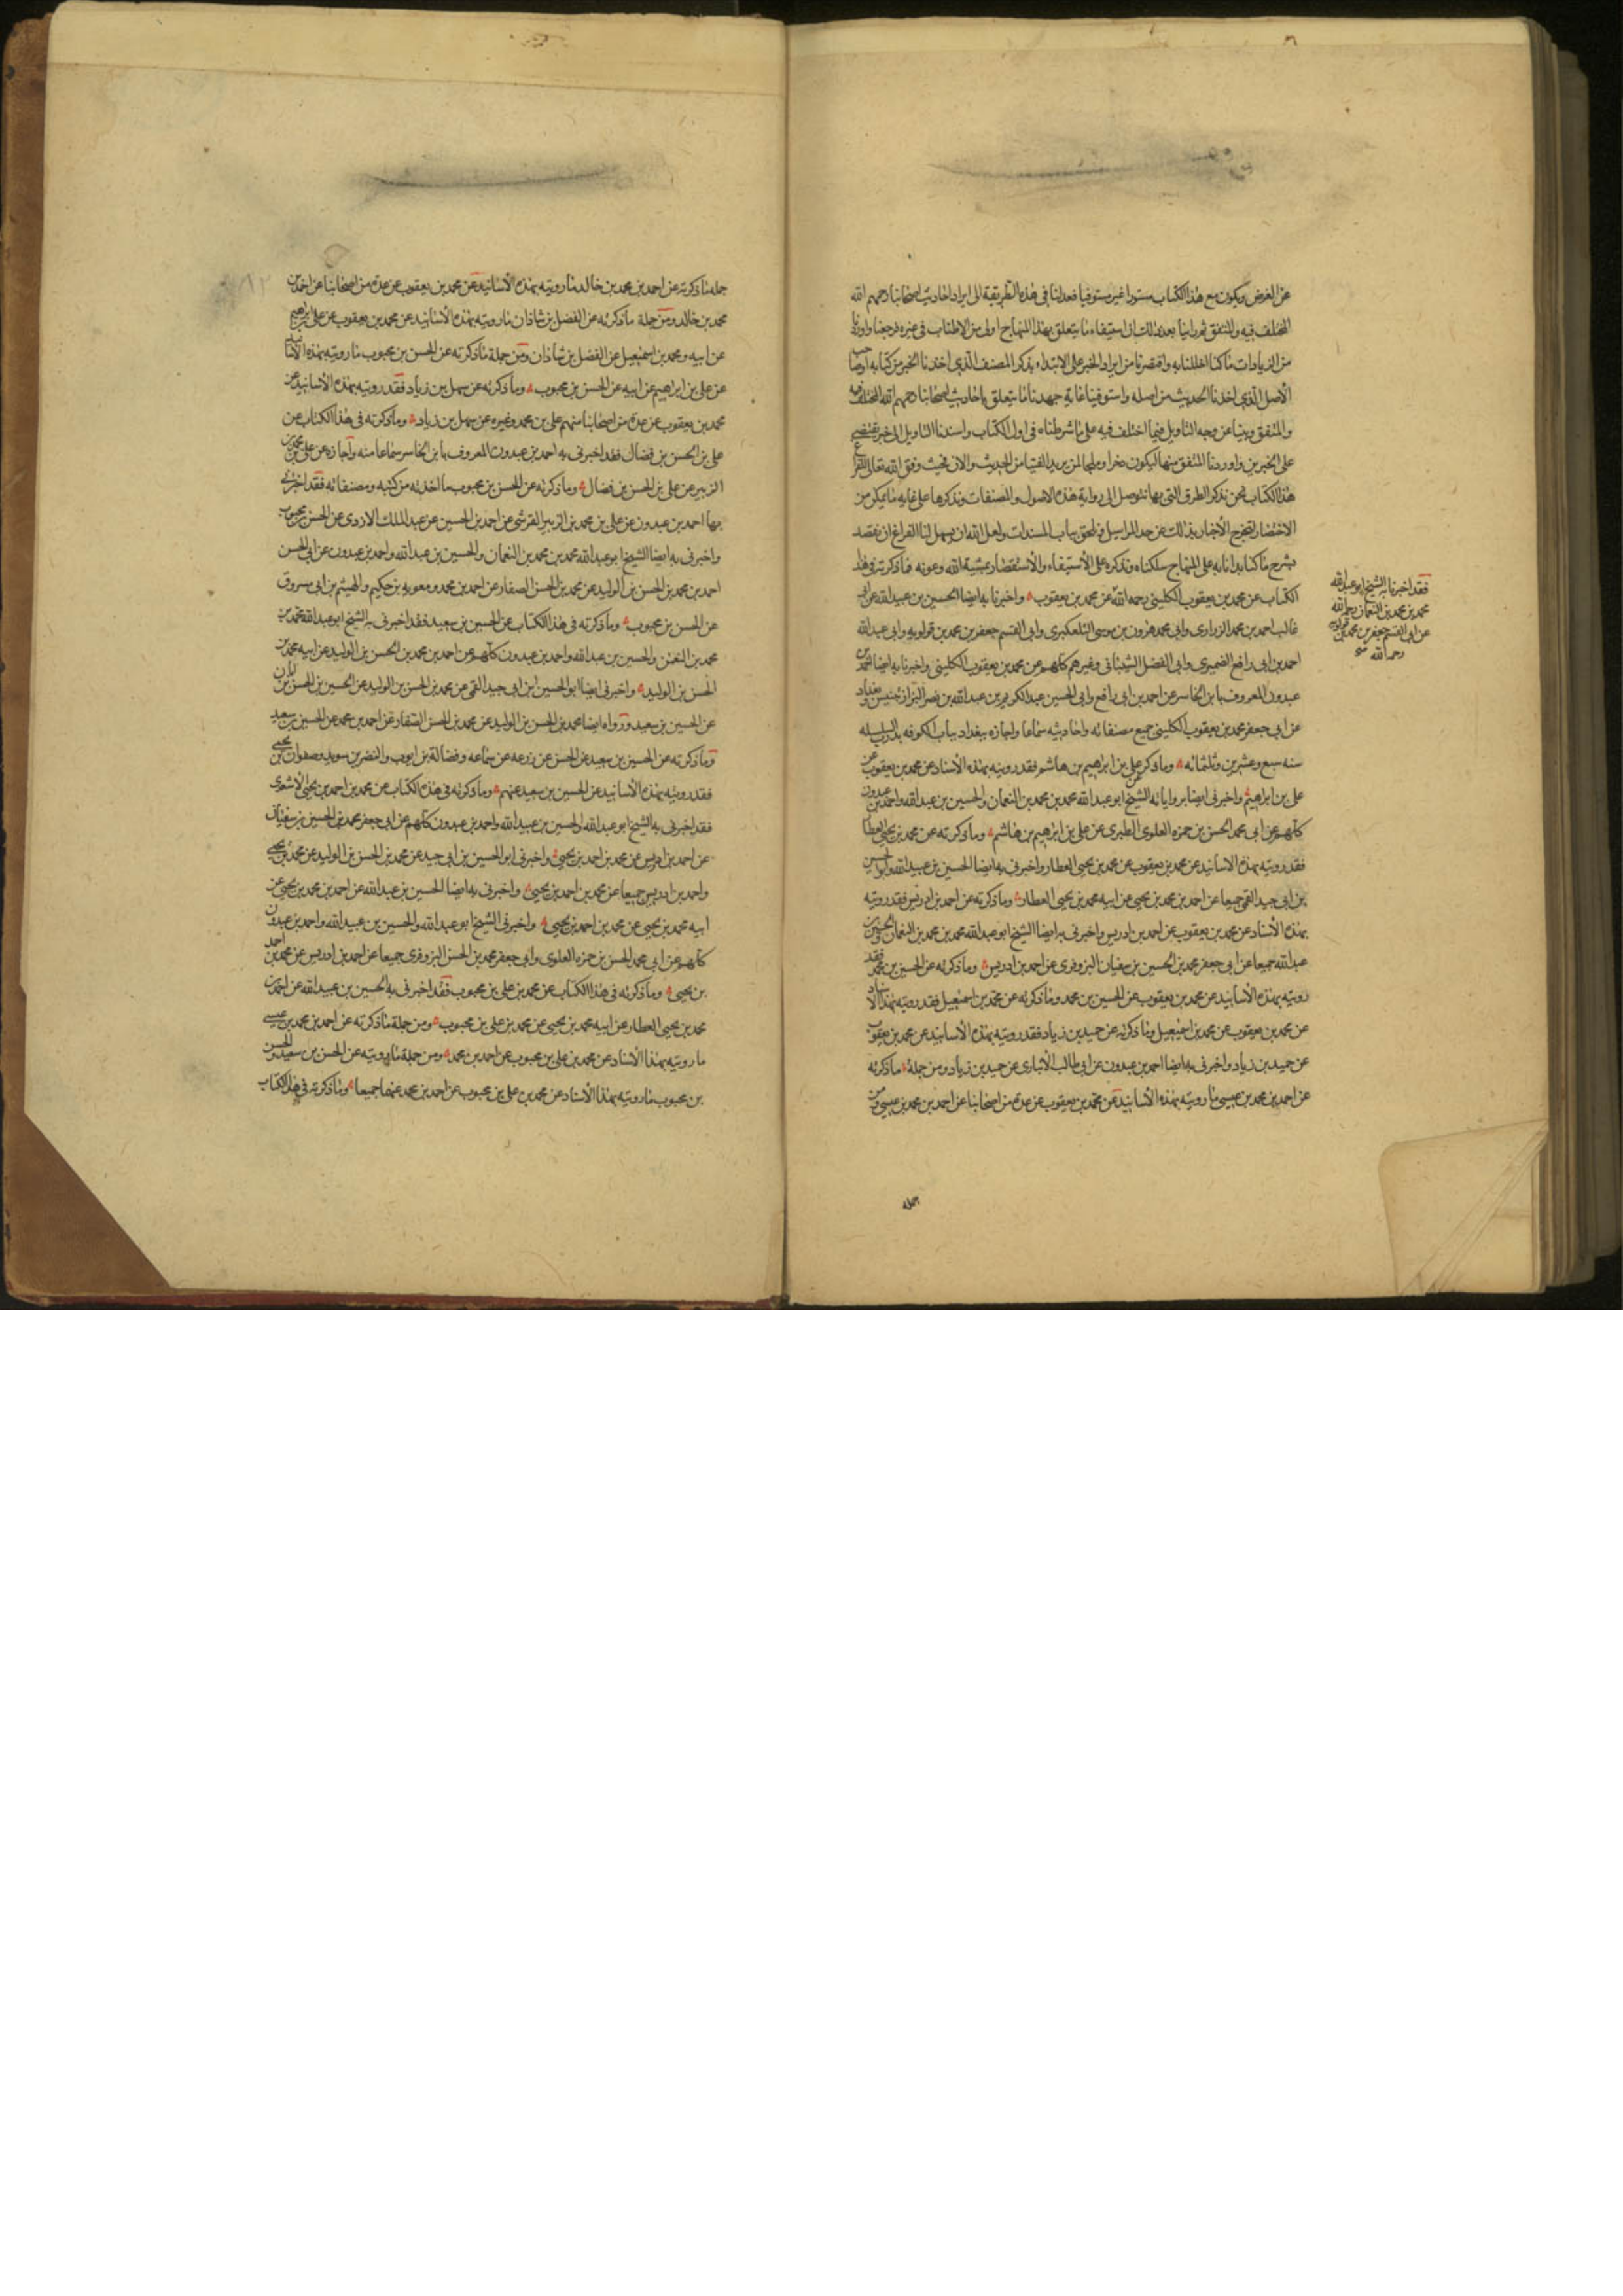 عن الغرض ويكون مع هذا الكتاب مبتورا غير مستوفيا فعدلنا في هذه الطريقة الى ايراد احاديث اصحابنا رحمهم الله
المختلف فيه والمتفق ثم راينا بعد ذلك ان استيفاء ما يتعلق بهذا المنهاج اولى من الاطناب في غيره فرجعنا واوردنا
من الزيادات ما كنا اخللنا به واقتصرنا من ايراد الخبر على الابتداء بذكر المصنف الذي اخذنا الخبر من كتابه او صاحب
الاصل الذي اخذنا الحديث من اصله واستوفينا غاية جهدنا ما يتعلق باحاديث اصحابنا رحمهم الله المختلف فيه
والمتفق وبينا عن وجه التاويل فيما اختلف فيه على ما شرطناه في اول الكتاب واسندنا التاويل الى خبر يقضي
على الخبرين واوردنا المتفق منها ليكون ذخرا وملجا لمن يريد الفتيا من الحديث والان فحيث وفق الله تعالى للفراغ
هذا الكتاب نحن نذكر الطرق التي بها نتوصل الى رواية هذه الاصول والمصنفات ونذكرها على غاية ما يمكن من
الاختصار لتخرج الاخبار بذلك عن حد المراسيل وتلحق بباب المسندات ولعل الله ان يسهل لنا الفراغ ان نقصد
بشرح ما كنا بدانا به على المنهاج سلكناه ونذكره على الاستيفاء والاستقصاء بمشية الله وعونه فما ذكرته في هذا
الكتاب عن محمد بن يعقوب الكليني رحمه الله عن محمد بن يعقوب واخبرنا به ايضا الحسين بن عبيد الله عن ابي
غالب احمد بن محمد الزراري وابي محمد هرون بن موسى التلعكبري وابي القسم جعفر بن محمد بن قولويه وابي عبد الله
احمد بن ابي رافع الصيمري وابي الفضل الشيباني وغيرهم كلهم عن محمد بن يعقوب الكليني واخبرنا به ايضا احمد بن
عبدون المعروف بابن الحاشر عن احمد بن ابي رافع وابي الحسين عبد الكريم بن عبد الله بن نصر البزاز بتنيس وبغداد
عن ابي جعفر محمد بن يعقوب الكليني جميع مصنفاته واحاديثه سماعا واجازه ببغداد بباب الكوفه بدرب السلسله
سنه سبع وعشرين وثلثمائه وما ذكر عن علي بن ابراهيم بن هاشم فقد رويته بهذه الاسناد عن محمد بن يعقوب عن
علي بن ابراهيم واخبرني ايضا برواياته الشيخ ابو عبد الله محمد بن محمد بن النعمان والحسين بن عبد الله واحمد بن عبدون
كلهم عن ابي محمد الحسن بن حمزه العلوي الطبري عن علي بن ابراهيم بن هاشم وما ذكرته عن محمد بن يحيى العطار
فقد رويته بهذه الاسانيد عن محمد بن يعقوب عن محمد بن يحيى العطار واخبرني به ايضا الحسين بن عبيد الله وابو الحسين
بن ابي جيد القمي جميعا عن احمد بن محمد بن يحيى عن ابيه محمد بن يحيى العطار وما ذكرته عن احمد بن ادريس فقد رويته
بهذه الاسناد عن محمد بن يعقوب عن احمد بن ادريس واخبرني به ايضا الشيخ ابو عبد الله محمد بن محمد بن النعمان والحسين بن
عبد الله جميعا عن ابي جعفر محمد بن الحسين بن سفيان البزوفري عن احمد بن ادريس وما ذكرته عن الحسين بن محمد فقد
رويته بهذه الاسانيد عن محمد بن يعقوب عن الحسين بن محمد وما ذكرته عن محمد بن اسمعيل فقد رويته بهذا الاسناد
عن محمد بن يعقوب عن محمد بن اسمعيل وما ذكرته عن حميد بن زياد فقد رويته بهذه الاسانيد عن محمد بن يعقوب
عن حميد بن زياد واخبرني به ايضا احمد بن عبدون عن ابي طالب الانباري عن حميد بن زياد ومن جملة ما ذكرته
عن احمد بن محمد بن عيسى ما رويته بهذه الاسانيد عن محمد بن يعقوب عن عدة من اصحابنا عن احمد بن محمد بن عيسى ومن
جمله
فقد اخبرنا به الشيخ ابو عبد الله
محمد بن محمد بن النعمان رحمه الله
عن ابي القسم جعفر بن محمد بن قولويه
رحمه الله
جمله ما ذكرته عن احمد بن محمد بن خالد ما رويته بهذه الاسانيد عن محمد بن يعقوب عن عدة من اصحابنا عن احمد بن
محمد بن خالد ومن جملة ما ذكرته عن الفضل بن شاذان ما رويته بهذه الاسانيد عن محمد بن يعقوب عن علي بن ابراهيم
عن ابيه ومحمد بن اسمعيل عن الفضل بن شاذان ومن جملة ما ذكرته عن الحسن بن محبوب ما رويته بهذه الاسانيد
عن علي بن ابراهيم عن ابيه عن الحسن بن محبوب وما ذكرته عن سهل بن زياد فقد رويته بهذه الاسانيد عن
محمد بن يعقوب عن عدة من اصحابنا منهم علي بن محمد وغيره عن سهل بن زياد وما ذكرته في هذا الكتاب عن
علي بن الحسن بن فضال فقد اخبرني به احمد بن عبدون المعروف بابن الحاشر سماعا منه واجازه عن علي بن محمد بن
الزبير عن علي بن الحسن بن فضال وما ذكرته عن الحسن بن محبوب ما اخذته من كتبه ومصنفاته فقد اخبرني
بها احمد بن عبدون عن علي بن محمد بن الزبير القرشي عن احمد بن الحسين عن عبد الملك الازدي عن الحسن بن محبوب
واخبرني به ايضا الشيخ ابو عبد الله محمد بن محمد بن النعمان والحسين بن عبد الله واحمد بن عبدون عن ابي الحسن
احمد بن محمد بن الحسن بن الوليد عن محمد بن الحسن الصفار عن احمد بن محمد ومعويه بن حكيم والهيثم بن ابي مسروق
عن الحسن بن محبوب وما ذكرته في هذا الكتاب عن الحسين بن سعيد فقد اخبرني به الشيخ ابو عبد الله محمد بن
محمد بن النعمن والحسين بن عبد الله واحمد بن عبدون كلهم عن احمد بن محمد بن الحسن بن الوليد عن ابيه محمد بن
الحسن بن الوليد واخبرني ايضا ابو الحسين ابن ابي جيد القمي عن محمد بن الحسن بن الوليد عن الحسين بن الحسن بن ابان
عن الحسين بن سعيد ورواه ايضا محمد بن الحسن بن الوليد عن محمد بن الحسن الصفار عن احمد بن محمد عن الحسين بن سعيد
وما ذكرته عن الحسين بن سعيد عن الحسن عن زرعه عن سماعه وفضالة بن ايوب والنضر بن سويد وصفوان بن يحيى
فقد رويته بهذه الاسانيد عن الحسين بن سعيد عنهم وما ذكرته في هذه الكتاب عن محمد بن احمد بن يحيى الاشعري
فقد اخبرني به الشيخ ابو عبد الله والحسين بن عبيد الله واحمد بن عبدون كلهم عن ابي جعفر محمد بن الحسين بن سفيان
عن احمد بن ادريس عن محمد بن احمد بن يحيى واخبرني ابو الحسين بن ابي جيد عن محمد بن الحسن بن الوليد عن محمد بن يحيى
واحمد بن ادريس جميعا عن محمد بن احمد بن يحيى واخبرني به ايضا الحسين بن عبد الله عن احمد بن محمد بن يحيى عن
ابيه محمد بن يحيى عن محمد بن احمد بن يحيى واخبرني الشيخ ابو عبد الله والحسين بن عبيد الله واحمد بن عبدون
كلهم عن ابي محمد الحسن بن حمزه العلوي وابي جعفر محمد بن الحسن البزوفري جميعا عن احمد بن ادريس عن محمد بن احمد
بن يحيى وما ذكرته في هذا الكتاب عن محمد بن علي بن محبوب فقد اخبرني به الحسين بن عبيد الله عن احمد بن
محمد بن يحيى العطار عن ابيه محمد بن يحيى عن محمد بن علي بن محبوب ومن جملة ما ذكرته عن احمد بن محمد بن عيسى
ما رويته بهذا الاسناد عن محمد بن علي بن محبوب عن احمد بن محمد ومن جملة ما رويته عن الحسن بن سعيد والحسن
بن محبوب ما رويته بهذا الاسناد عن محمد بن علي بن محبوب عن احمد بن محمد عنهما جميعا وما ذكرته في هذا الكتاب